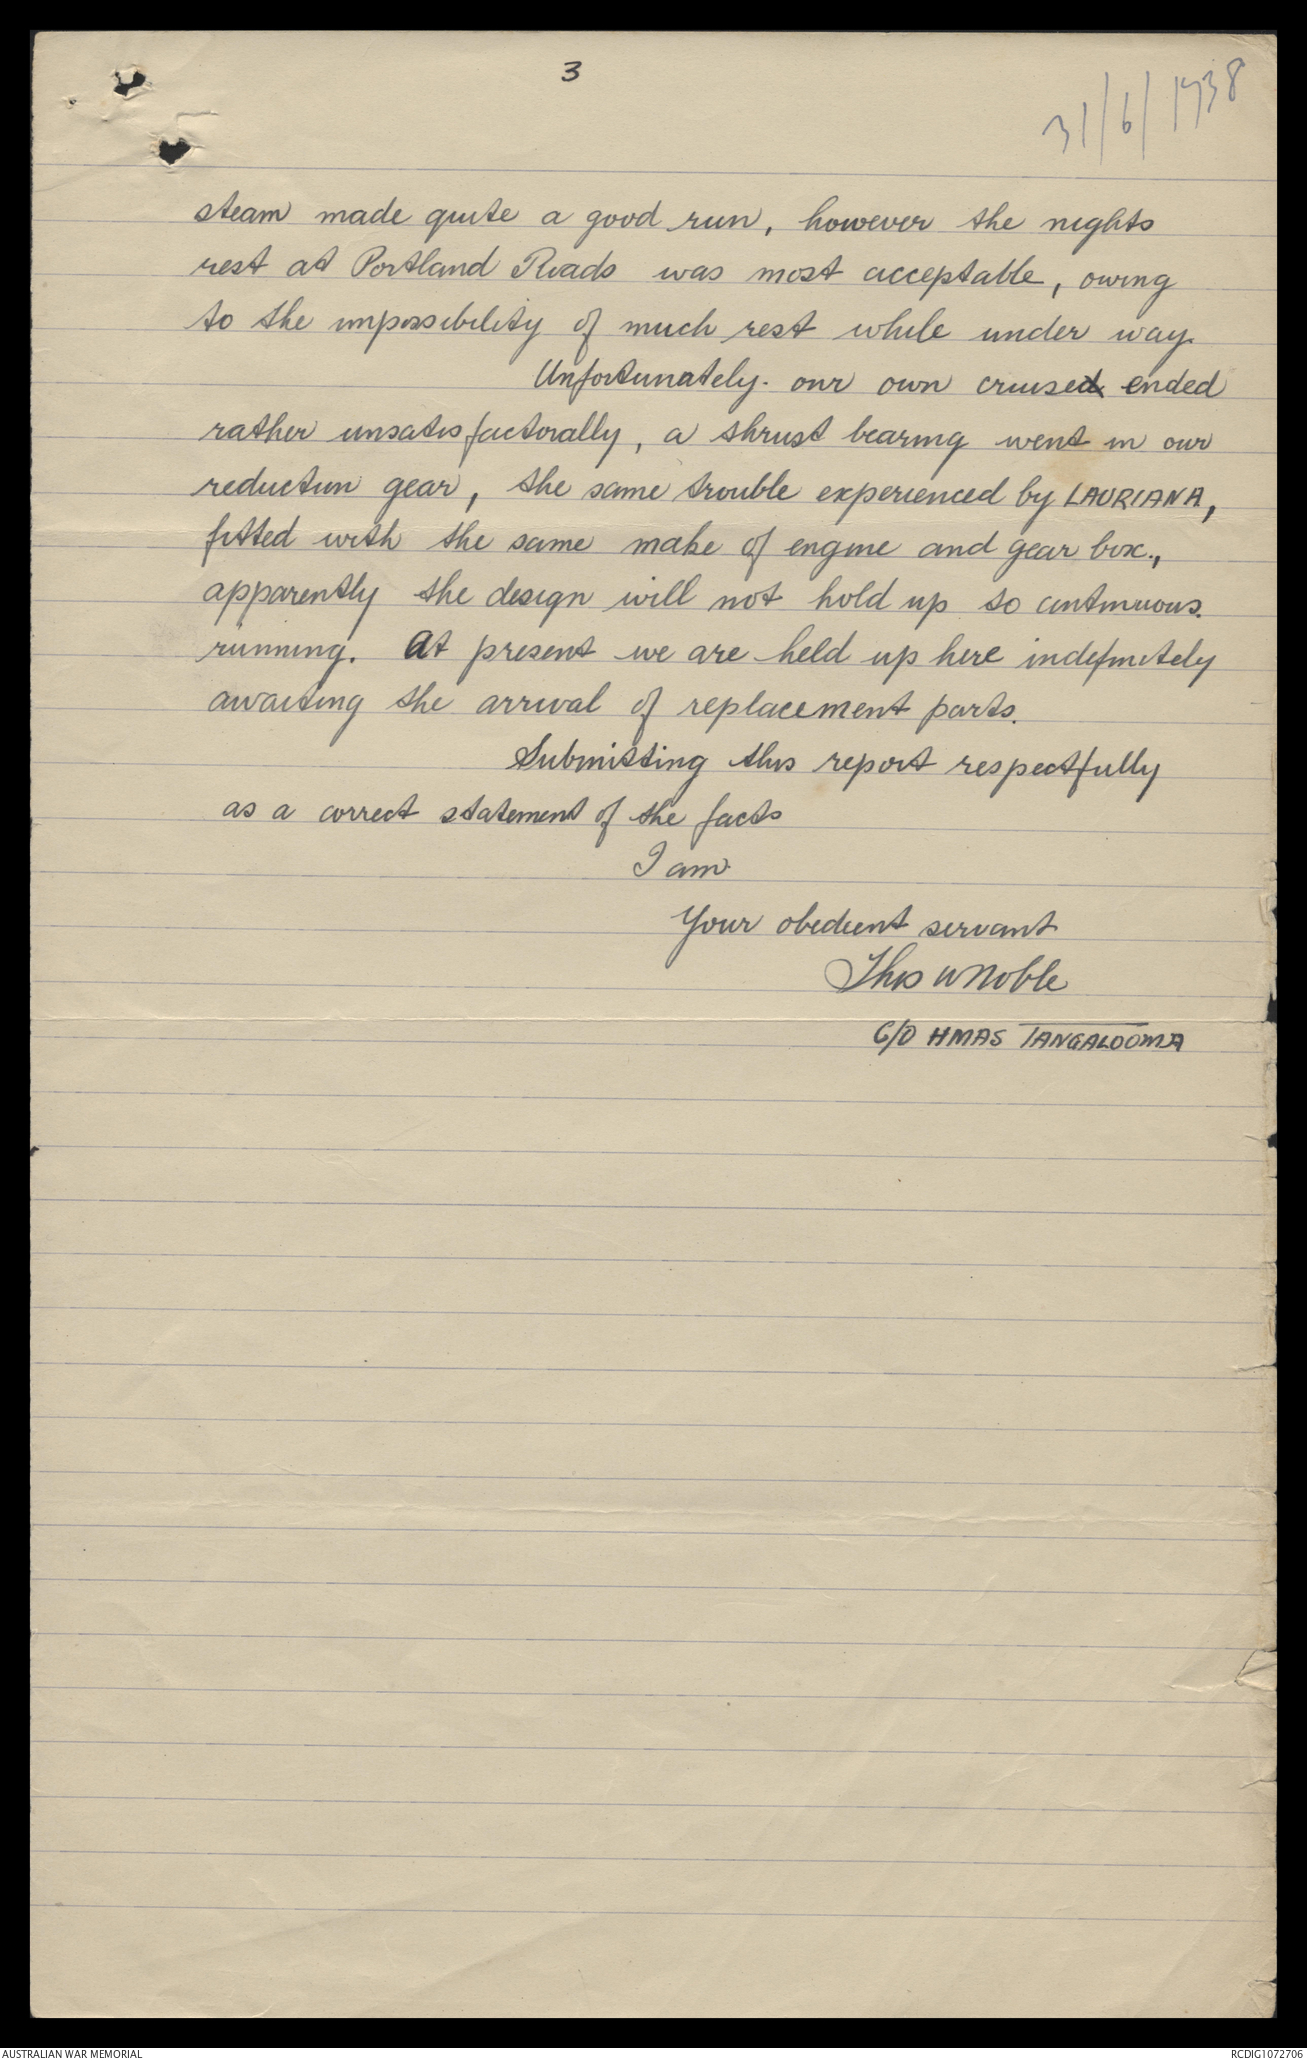 3
31/6/1738
steam made quite a good run, however the nights
rest at Portland Roads was most acceptable, owing
to the impossibility of much rest while under way.
Unfortunately our own cruised ended
rather unsatisfactorally, a thrust bearing went in our
reduction gear, the same trouble experienced by LAURIANA,
fitted with the same make of engine and gear box.,
apparently the design will not hold up to continuous
running. At present we are held up here indefinitely
awaiting the arrival of replacement parts.
Submitting this report respectfully
as a correct statement of the facts
I am
Your obedient servant
Thos W Noble
C/O HMAS TANGALOOMA
AUSTRALIAN WAR MEMORIAL
RCDIG1072706